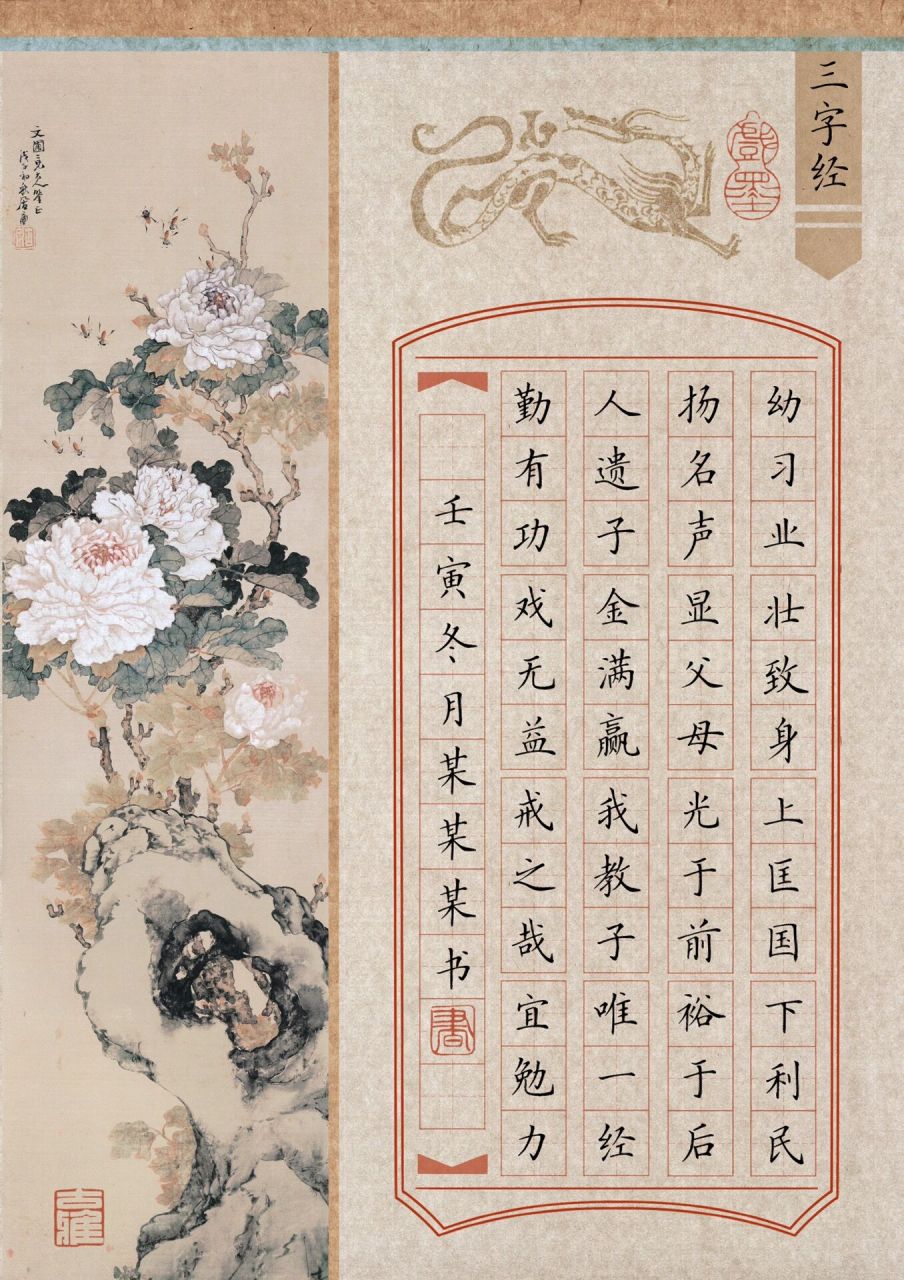 三字经
戲墨
幼习业壮致身上匡国下利民
扬名声显父母光于前裕于后
人遗子金满赢我教子唯一经
勤有功戏无益戒之哉宜勉力
壬寅冬月某某某书
書